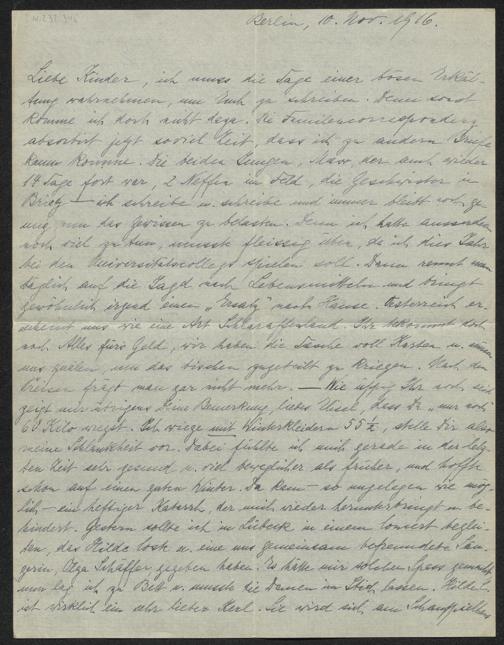 Berlin, 10. Nov. 1916.
Liebe Kinder, ich muss die Tage einer bösen Erkäl-
tung wahrnehmen, um Euch zu schreiben. Denn sonst
komme ich doch nicht dazu. Die Familiencorrespondenz
absorbirt jetzt soviel Zeit, dass ich zu andern Briefen
kaum komme. Die beiden Jungen, Max, der auch wieder
14 Tage fort war, 2 Neffen im Feld, die Geschwister in
Brieg – ich schreibe u. schreibe und immer bleibt noch ge-
nug, um das Gewissen zu belasten. Denn ich hatte ausserdem
noch viel zu tun, musste fleissig üben, da ich dies Jahr
bei den spielen soll. Dann rennt man
täglich auf die Jagd nach Lebensmitteln und bringt
gewöhnlich irgend einen „Ersatz" nach Hause. Österreich er-
scheint uns wie eine Art Schlaraffenland. Ihr bekommt doch
noch Alles fürs Geld, wir haben die Tasche voll Karten u. müssen
uns quälen, um das bischen zugeteilt zu kriegen. Nach den
Preisen frägt man gar nicht mehr. — Wie üppig Ihr noch seid
zeigt mir übrigens Deine Bemerkung, liebes , dass Du „nur noch
60 Kilo wiegst. Ich wiege mit Winterkleidern 55 , stelle Dir also
meine Schlankheit vor. Dabei fühlte ich mich gerade in der letz-
ten Zeit sehr gesund u. viel beweglicher als früher, und hoffte
schon auf einen guten Winter. Da kam – so ungelegen wie mög-
lich – ein heftiger Katarrh, der mich wieder herunterbringt u. be-
hindert. Gestern sollte ich in Lübeck in einem Concert beglei-
ten, das Hilde dort u. eine uns gemeinsam befreundete Sän-
gerin, Olga Schäffer, gegeben haben. Es hätte mir solchen Spass gemacht
nun lag ich zu Bett u. musste die Damen im Stich lassen. Hilde
ist wirklich ein sehr lieber Kerl. Sie wird sich am Schauspielhaus